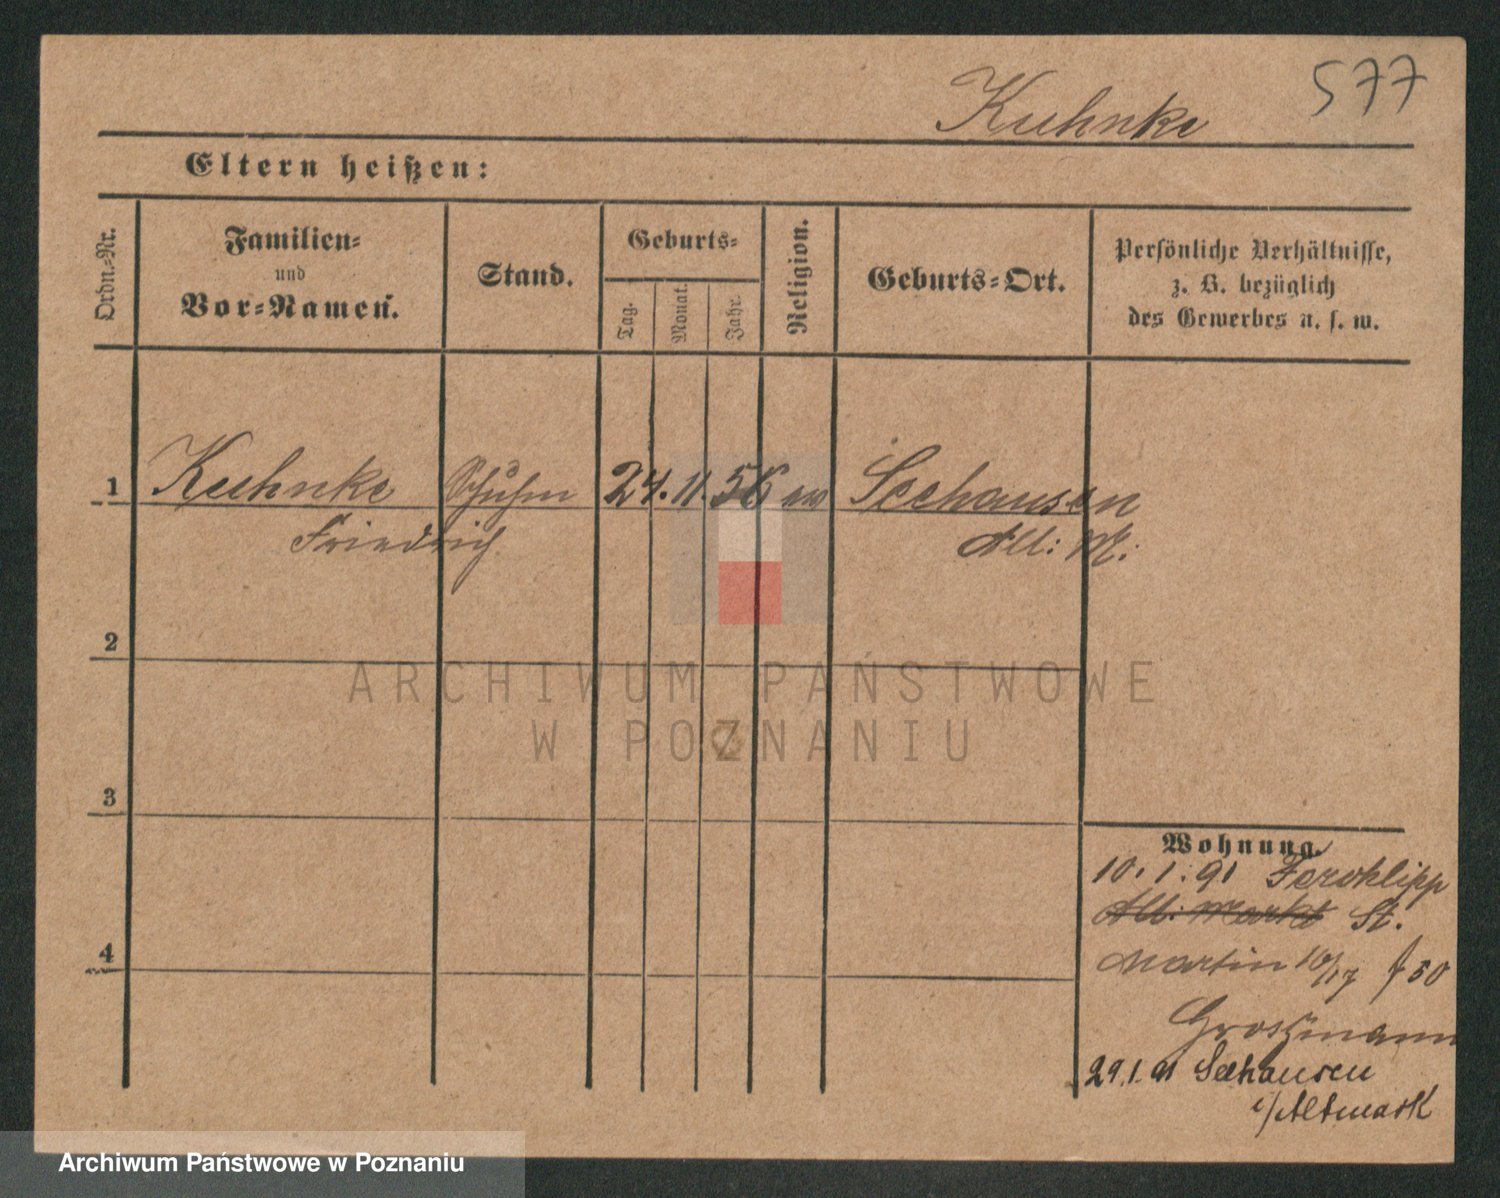 577
Kuhnke
Eltern heißen:
Ordn.-Nr.
Familien-
und
Vor-Namen.
Stand.
Geburts-
Tag.
Monat.
Jahr.
Religion.
Geburts-Ort.
Persönliche Verhältnisse,
z. B. bezüglich
des Gewerbes u. s. w.
1 Kuhnke Schuhm 24. 11. 56 ew Seehausen
Friedrich Alt: M:
2
ARCHIWUM PAŃSTWOWE
W POZNANIU
3
Wohnung.
10. 1. 91
Alt: Markt St.
Martin 16/17 f 50
4
Großmann
29.1.91 Seehausen
i/Altmark
Archiwum Państwowe w Poznaniu